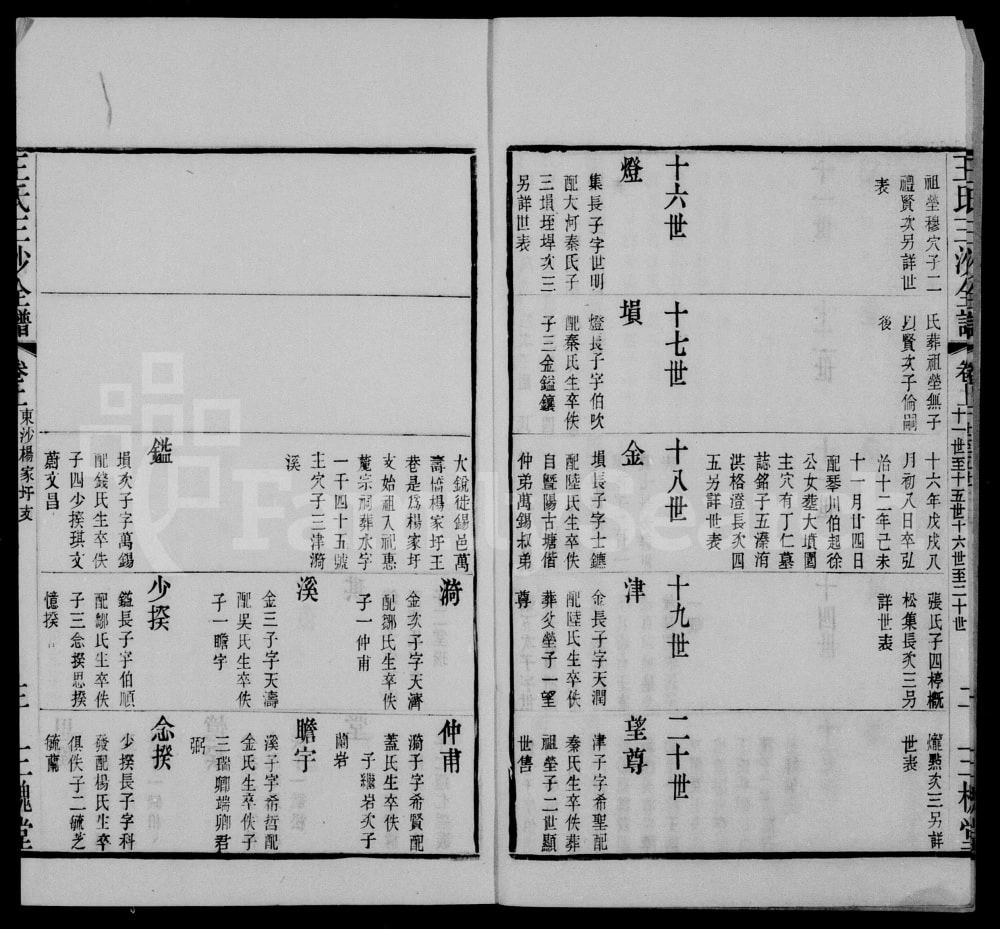 王氏三沙全譜
十一世至十五世十六世至二十世
二
三槐堂
祖塋穆穴子二
禮賢次另詳世
表
十六世
燈
集長子字世明
配大河秦氏子
三塤垤埤次三
另詳世表
氏葬祖塋無子
以賢次子倫嗣
後
十七世
塤
燈長子字伯吹
配秦氏生卒佚
子三金鎰鑲
十六年戊戌八
月初八日卒弘
治十二年己未
十一月廿四日
配琴川伯起徐
公女葬大墳圍
主穴有丁仁墓
誌銘子五溱洧
洪格澄長次四
五另詳世表
十八世
金
塤長子字士鑣
配陸氏生卒佚
自暨陽古塘偕
仲弟萬錫叔弟
張氏子四樗概
松集長次三另
詳世表
十九世
津
金長子字天潤
配陸氏生卒佚
葬父塋子一望
尊
燿點次三另詳
世表
二十世
望尊
津子字希聖配
秦氏生卒佚葬
祖塋子二世顯
世雋
大銳徙錫邑萬
壽橋楊家圩王
巷是為楊家圩
支始祖入祀惠
麓宗祠葬水字
一千四十五號
主穴子三津漪
溪
鎰
塤次子字萬錫
配錢氏生卒佚
子四少揆琪文
蔚文昌
漪
金次子字天濟
配鄒氏生卒佚
子一仲甫
溪
金三子字天濤
配吳氏生卒佚
子一瞻宇
少揆
鎰長子字伯順
配鄒氏生卒佚
子三念揆思揆
憶揆
仲甫
漪子字希賢配
蓋氏生卒佚
子繼岩次子
蘭岩
瞻宇
溪子字希哲配
金氏生卒佚子
三瑞卿端卿君
弼
念揆
少揆長子字科
發配楊氏生卒
俱佚子二毓芝
毓蘭
王氏三沙全譜
卷十一
東沙楊家圩支
三
三槐堂